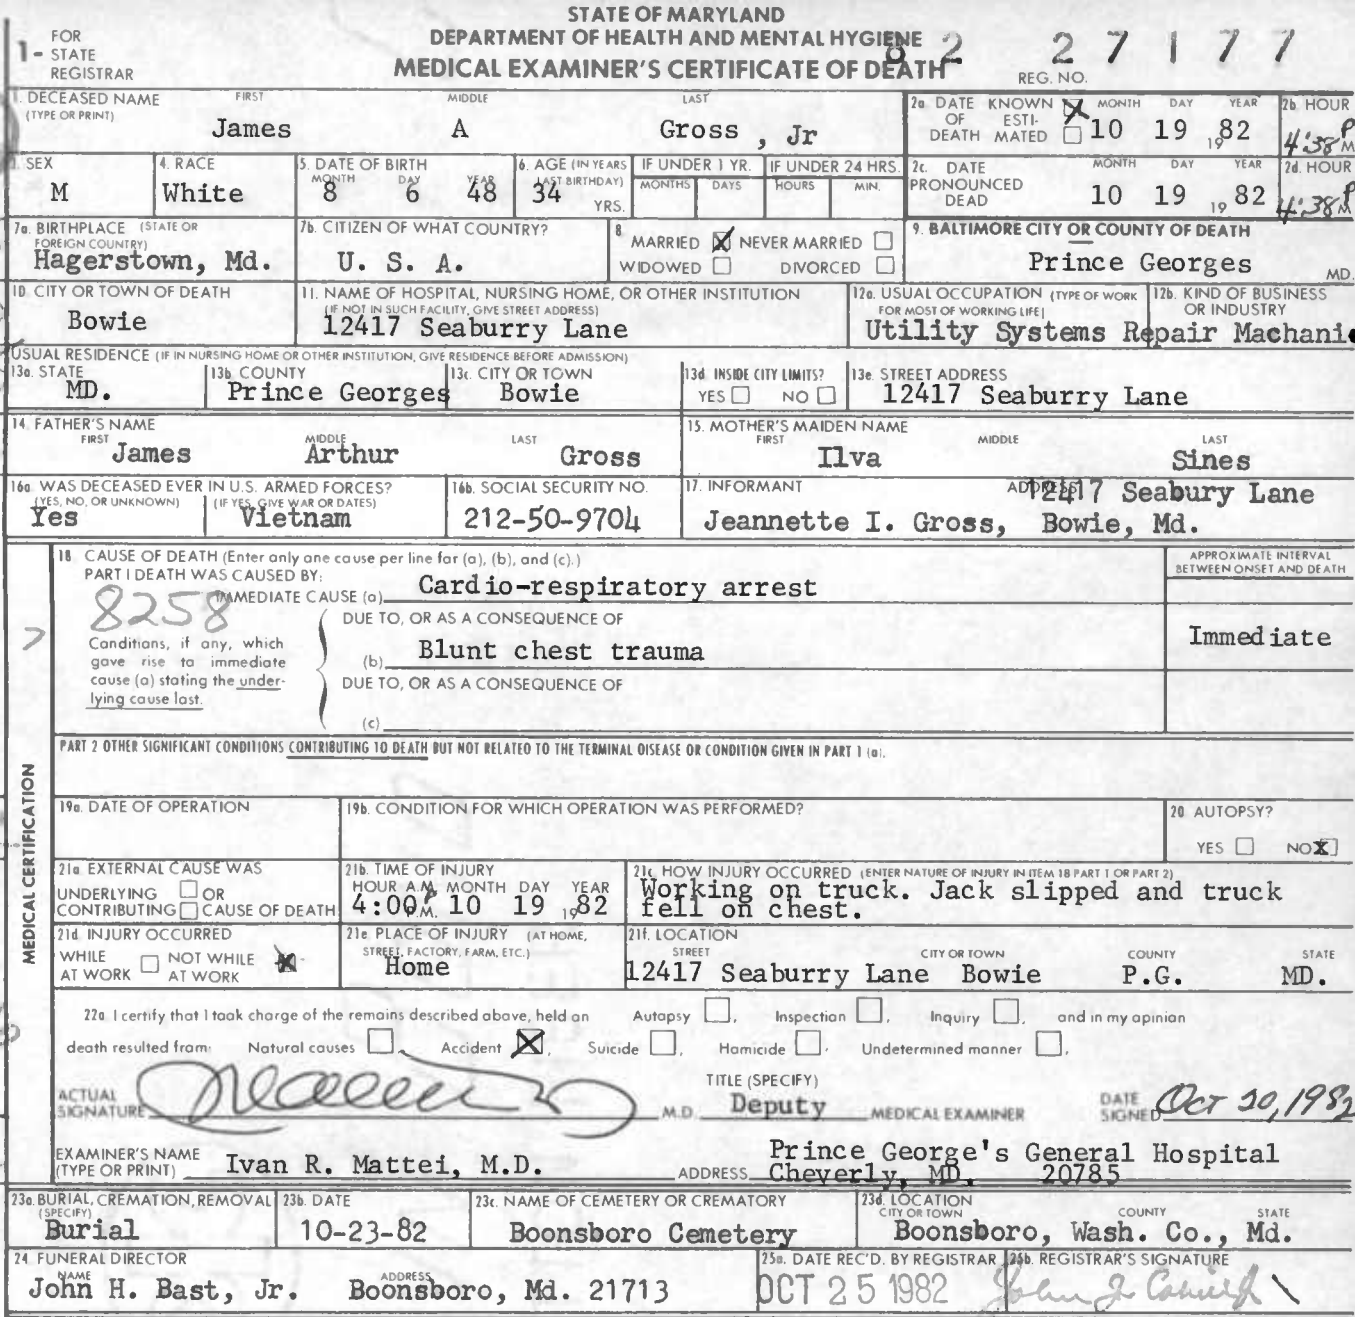 STATE OF MARYLAND
DEPARTMENT OF HEALTH AND MENTAL HYGIENE
MEDICAL EXAMINER'S CERTIFICATE OF DEATH
1- FOR STATE REGISTRAR
82 27177
REG. NO.
1. DECEASED NAME (TYPE OR PRINT) FIRST MIDDLE LAST
James A Gross, Jr
2a. DATE OF DEATH KNOWN X ESTIMATED MONTH DAY YEAR
10 19 1982
2b. HOUR
4:38 P M
3. SEX
M
4. RACE
White
5. DATE OF BIRTH MONTH DAY YEAR
8 6 48
6. AGE (IN YEARS LAST BIRTHDAY)
34 YRS.
IF UNDER 1 YR. MONTHS DAYS
IF UNDER 24 HRS. HOURS MIN.
2c. DATE PRONOUNCED DEAD MONTH DAY YEAR
10 19 1982
2d. HOUR
4:38 P M
7a. BIRTHPLACE (STATE OR FOREIGN COUNTRY)
Hagerstown, Md.
7b. CITIZEN OF WHAT COUNTRY?
U. S. A.
8. MARRIED X NEVER MARRIED
WIDOWED DIVORCED
9. BALTIMORE CITY OR COUNTY OF DEATH
Prince Georges MD.
10. CITY OR TOWN OF DEATH
Bowie
11. NAME OF HOSPITAL, NURSING HOME, OR OTHER INSTITUTION
(IF NOT IN SUCH FACILITY, GIVE STREET ADDRESS)
12417 Seaburry Lane
12a. USUAL OCCUPATION (TYPE OF WORK FOR MOST OF WORKING LIFE)
12b. KIND OF BUSINESS OR INDUSTRY
Utility Systems Repair Machani
USUAL RESIDENCE (IF IN NURSING HOME OR OTHER INSTITUTION, GIVE RESIDENCE BEFORE ADMISSION)
13a. STATE
MD.
13b. COUNTY
Prince Georges
13c. CITY OR TOWN
Bowie
13d. INSIDE CITY LIMITS?
YES NO
13e. STREET ADDRESS
12417 Seaburry Lane
14. FATHER'S NAME FIRST MIDDLE LAST
James Arthur Gross
15. MOTHER'S MAIDEN NAME FIRST MIDDLE LAST
Ilva Sines
16a. WAS DECEASED EVER IN U.S. ARMED FORCES?
(YES, NO, OR UNKNOWN) (IF YES, GIVE WAR OR DATES)
Yes Vietnam
16b. SOCIAL SECURITY NO.
212-50-9704
17. INFORMANT ADDRESS
12417 Seabury Lane
Jeannette I. Gross, Bowie, Md.
MEDICAL CERTIFICATION
18. CAUSE OF DEATH (Enter only one cause per line for (a), (b), and (c).)
PART I DEATH WAS CAUSED BY:
IMMEDIATE CAUSE (a) Cardio-respiratory arrest
8258
APPROXIMATE INTERVAL BETWEEN ONSET AND DEATH
Conditions, if any, which gave rise to immediate cause (a) stating the underlying cause last.
DUE TO, OR AS A CONSEQUENCE OF
(b) Blunt chest trauma
Immediate
DUE TO, OR AS A CONSEQUENCE OF
(c)
PART 2 OTHER SIGNIFICANT CONDITIONS CONTRIBUTING TO DEATH BUT NOT RELATED TO THE TERMINAL DISEASE OR CONDITION GIVEN IN PART 1 (a).
19a. DATE OF OPERATION
19b. CONDITION FOR WHICH OPERATION WAS PERFORMED?
20 AUTOPSY?
YES NO X
21a EXTERNAL CAUSE WAS
UNDERLYING OR
CONTRIBUTING CAUSE OF DEATH
21b. TIME OF INJURY
HOUR A.M. P.M. MONTH DAY YEAR
4:00 P 10 19 1982
21c. HOW INJURY OCCURRED (ENTER NATURE OF INJURY IN ITEM 18 PART 1 OR PART 2)
Working on truck. Jack slipped and truck
fell on chest.
21d INJURY OCCURRED
WHILE AT WORK NOT WHILE AT WORK X
21e PLACE OF INJURY (AT HOME, STREET, FACTORY, FARM, ETC.)
Home
21f. LOCATION
STREET CITY OR TOWN COUNTY STATE
12417 Seaburry Lane Bowie P.G. MD.
22a I certify that I took charge of the remains described above, held an Autopsy , Inspection , Inquiry , and in my opinion
death resulted from: Natural causes , Accident X, Suicide , Homicide , Undetermined manner .
ACTUAL SIGNATURE M.D.
TITLE (SPECIFY)
Deputy MEDICAL EXAMINER
DATE SIGNED Oct 20, 1982
EXAMINER'S NAME (TYPE OR PRINT) Ivan R. Mattei, M.D.
ADDRESS Prince George's General Hospital
Cheverly, MD. 20785
23a. BURIAL, CREMATION, REMOVAL (SPECIFY)
Burial
23b. DATE
10-23-82
23c. NAME OF CEMETERY OR CREMATORY
Boonsboro Cemetery
23d. LOCATION CITY OR TOWN COUNTY STATE
Boonsboro, Wash. Co., Md.
24. FUNERAL DIRECTOR
NAME ADDRESS
John H. Bast, Jr. Boonsboro, Md. 21713
25a. DATE REC'D. BY REGISTRAR
OCT 25 1982
25b. REGISTRAR'S SIGNATURE